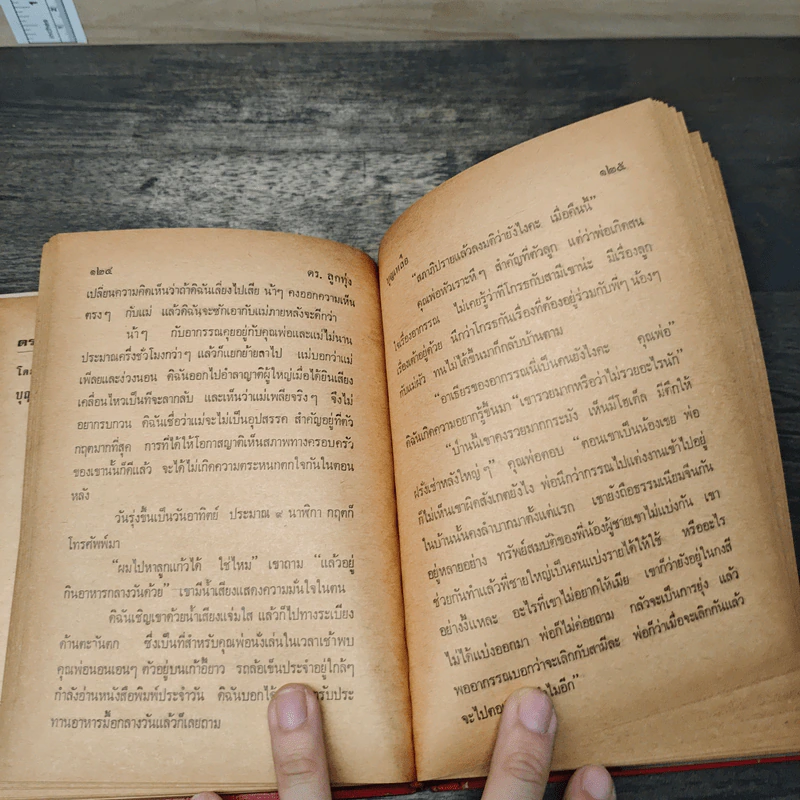 ๑๒๔ ดร. ลูกทุ่ง
เปลี่ยนความคิดเห็นว่าถ้าดิฉันเลี่ยงไปเสีย น้าๆ คงออกความเห็น
ตรงๆ กับแม่ แล้วดิฉันจะซักเอากับแม่ภายหลังจะดีกว่า
น้าๆ กับอากรรณคุยอยู่กับคุณพ่อและแม่ไม่นาน
ประมาณครึ่งชั่วโมงกว่าๆ แล้วก็แยกย้ายลาไป แม่บอกว่าแม่
เพลียและง่วงนอน ดิฉันออกไปอำลาญาติผู้ใหญ่เมื่อได้ยินเสียง
เคลื่อนไหวเป็นทีจะลากลับ และเห็นว่าแม่เพลียจริงๆ จึงไม่
อยากรบกวน ดิฉันเชื่อว่าแม่จะไม่เป็นอุปสรรค สำคัญอยู่ที่ตัว
กฤตมากที่สุด การที่ได้ให้โอกาสญาติเห็นสภาพทางครอบครัว
ของเขานั้นก็ดีแล้ว จะได้ไม่เกิดความตระหนกตกใจกันในตอน
หลัง
วันรุ่งขึ้นเป็นวันอาทิตย์ ประมาณ ๙ นาฬิกา กฤตก็
โทรศัพท์มา
“ผมไปหาลูกแก้วได้ ใช่ไหม” เขาถาม “แล้วอยู่
กินอาหารกลางวันด้วย” เขามีน้ำเสียงแสดงความมั่นใจในตน
ดิฉันเชิญเขาด้วยน้ำเสียงแจ่มใส แล้วก็ไปทางระเบียง
ด้านตะวันตก ซึ่งเป็นที่สำหรับคุณพ่อนั่งเล่นในเวลาเช้าพบ
คุณพ่อนอนเอนๆ ตัวอยู่บนเก้าอี้ยาว รถล้อเข็นประจำอยู่ใกล้ๆ
กำลังอ่านหนังสือพิมพ์ประจำวัน ดิฉันบอกได้ รับประ
ทานอาหารมื้อกลางวันแล้วก็เลยถาม
๑๒๕
บุญเหลือ
“สภาภิปรายแล้วลงมติว่ายังไงคะ เมื่อคืนนี้”
คุณพ่อหัวเราะหึๆ สำคัญที่ตัวลูก แต่ว่าพ่อเกิดสน
ใจเรื่องอากรรณ ไม่เคยรู้ว่าทีโกรธกับสามีเขาน่ะ มีเรื่องลูก
เรื่องเต้าอยู่ด้วย นึกว่าโกรธกันเรื่องที่ต้องอยู่ร่วมกับพี่ๆ น้องๆ
กับแม่ผัว ทนไม่ได้ขึ้นมาก็กลับบ้านตาม
“อาเธียรของอากรรณนี่เป็นคนยังไงคะ คุณพ่อ”
ดิฉันเกิดความอยากรู้ขึ้นมา “เขารวยมากหรือว่าไม่รวยอะไรนัก”
“บ้านนี้เขาคงรวยมากกระมัง เห็นมีโฮเต็ล มีตึกให้
ฝรั่งเช่าหลังใหญ่ๆ” คุณพ่อตอบ “ตอนเขาเป็นน้องเขย พ่อ
ก็ไม่เห็นเขาผิดสังเกตยังไง พ่อนึกว่ากรรณไปแต่งงานเข้าไปอยู่
ในบ้านนั้นคงลำบากมาตั้งแต่แรก เขายังถือธรรมเนียมจีนกัน
อยู่หลายอย่าง ทรัพย์สมบัติของพี่น้องผู้ชายเขาไม่แบ่งกัน เขา
ช่วยกันทำแล้วพี่ชายใหญ่เป็นคนแบ่งรายได้ให้ใช้ หรืออะไร
อย่างงี้แหละ อะไรที่เขาไม่อยากให้เมีย เขาก็ว่ายังอยู่ในกงสี
ไม่ได้แบ่งออกมา พ่อก็ไม่ค่อยถาม กลัวจะเป็นการยุ่ง แล้ว
พออากรรณบอกว่าจะเลิกกับสามีละ พ่อก็ว่าเมื่อจะเลิกกันแล้ว
ไมอีก”